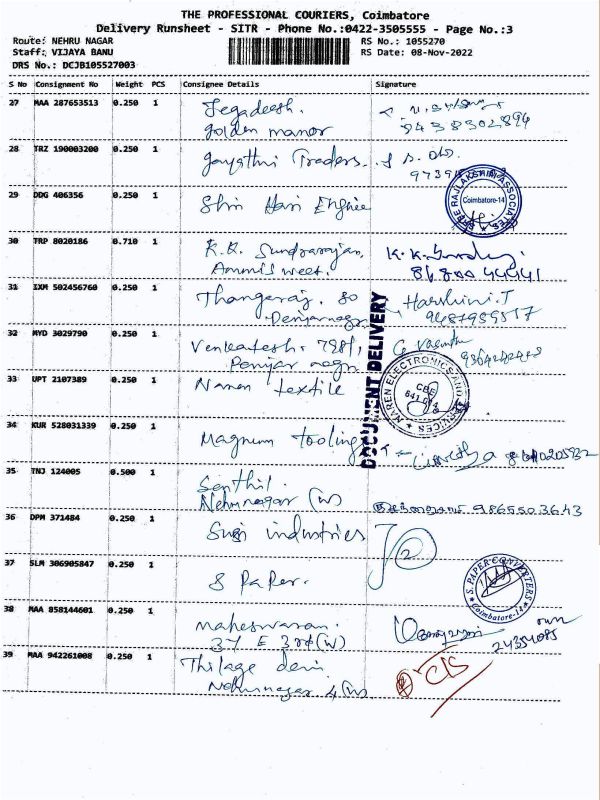 THE PROFESSIONAL COURIERS, Coimbatore
Delivery Runsheet - SITR - Phone No.:0422-3505555 - Page No.:3
Route: NEHRU NAGAR
Staff: VIJAYA BANU
DRS No.: DCJB105527003
RS No.: 1055270
RS Date: 08-Nov-2022
S No Consignment No Weight PCS Consignee Details Signature
27 MAA 287653513 0.250 1 Jegadeesh.
golden manor
9438302894
28 TRZ 190003200 0.250 1 Gayathri Traders.
29 DDG 406356 0.250 1 Shri Hari Engine
SREE RAJLAKSHMI ASSOCIATES
Coimbatore-14
30 TRP 8020186 0.710 1 K.K. Sundrarajan,
Ammis weet.
31 IXM 502456760 0.250 1 Thangaraj. 80 Harshini.T
DOCUMENT DELIVERY
32 MYD 3029790 0.250 1 Venkatesh.
33 UPT 2107389 0.250 1 Naren textile
NAREN ELECTRONICS AND SERVICES
CBE
641 014
34 KUR 528031339 0.250 1 Magnum tooling
35 TNJ 124005 0.500 1 Senthil.
Nehrunagar (W) 9865503643
36 DPM 371484 0.250 1 Sugi industries
37 SLM 306905847 0.250 1 S Paper.
S. PAPER CONVERTERS
Coimbatore-14
38 MAA 858144601 0.250 1 maheswaran.
37 E 3rd (W)
39 MAA 942261008 0.250 1 Thilaga devi
Nehrunagar 4 (W)